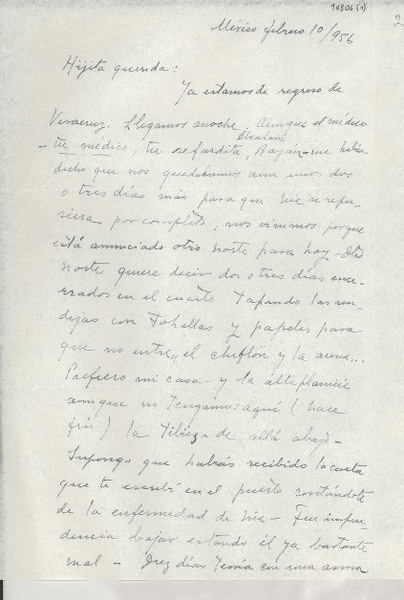 10806 (1)
2
México febrero 10/956
Hijita querida:
Ya estamos de regreso de
Veracruz. Llegamos anoche. Aunque el médico
- tu médico, tu sefardita, Bazán - me había
dicho que nos quedáramos aun unos dos
o tres días más para que Nic se repu-
siera por completo, nos vinimos porque
está anunciado otro norte para hoy - Otro
norte quiere decir dos o tres días ence-
rrados en el cuarto tapando las ren-
dijas con tohallas y papeles para
que no entre el chiflón y la arena...
Prefiero mi casa y la altiplanicie
aunque no tengamos aquí (hace
frío) la tibieza de allá abajo -
Supongo que habrás recibido la carta
que te escribí en el puerto contándote
de la enfermedad de Nic - Fue impru-
dencia bajar estando él ya bastante
mal - Diez días tenía con una asma